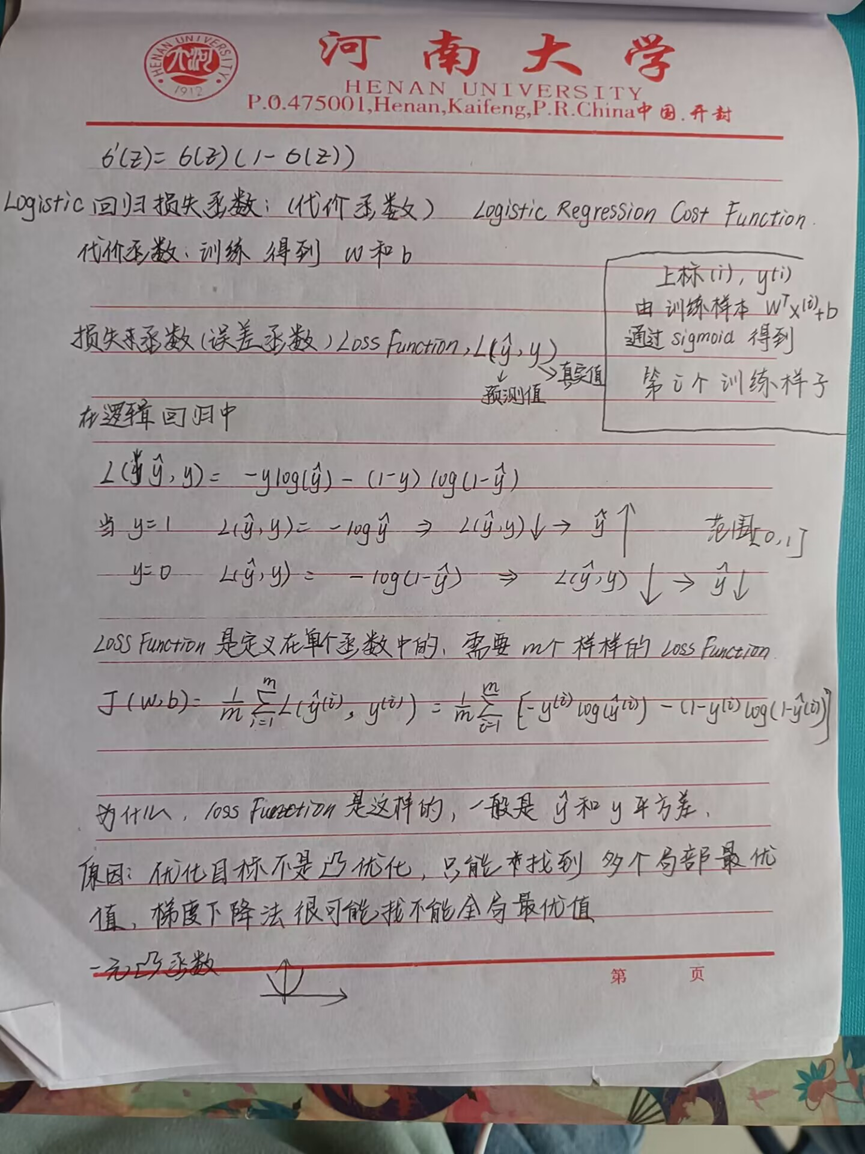 河南大学
HENAN UNIVERSITY
1912
HENAN UNIVERSITY
P.O.475001,Henan,Kaifeng,P.R.China中国.开封
σ'(z)= σ(z)(1-σ(z))
Logistic 回归损失函数:(代价函数) Logistic Regression Cost Function.
代价函数:训练 得到 w和b
上标(i), y(i)
由训练样本 WᵀX⁽ⁱ⁾+b
通过sigmoid 得到
第i个训练样子
损失函数(误差函数)Loss Function, L(ŷ, y)
预测值
真实值
在逻辑回归中
L(ŷ, y)= -ylog(ŷ)-(1-y)log(1-ŷ)
当 y=1 L(ŷ,y)= -logŷ ⇒ L(ŷ,y)↓ → ŷ↑ 范围[0,1]
y=0 L(ŷ,y)= -log(1-ŷ) ⇒ L(ŷ,y)↓ → ŷ↓
Loss Function 是定义在单个函数中的, 需要m个样样的Loss Function
J(w,b)= 1/m ∑ᵢ₌₁ᵐ L(ŷ⁽ⁱ⁾, y⁽ⁱ⁾) = 1/m ∑ᵢ₌₁ᵐ [-y⁽ⁱ⁾log(ŷ⁽ⁱ⁾)-(1-y⁽ⁱ⁾log(1-ŷ⁽ⁱ⁾)]
为什么, loss Function 是这样的,一般是 ŷ和y平方差.
原因: 优化目标不是凸优化,只能找到 多个局部最优
值, 梯度下降法很可能找不能全局最优值
一元凸函数
第 页